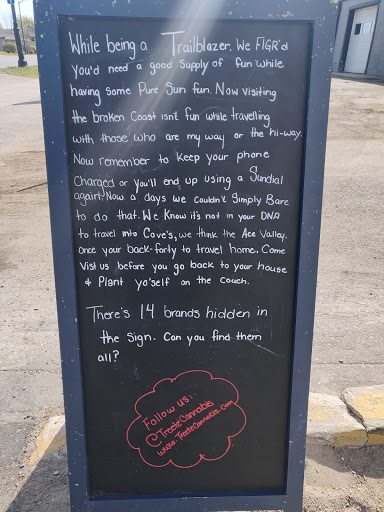 While being a Trailblazer. We FIGR'd
you'd need a good supply of fun while
having some Pure Sun fun. Now visiting
the broken Coast isn't fun while travelling
with those who are my way or the hi-way.
Now remember to keep your phone
Charged or you'll end up using a Sundial
again. Now a days we couldn't Simply Bare
to do that. We Know it's not in your DNA
to travel into Cove's, we think the Ace Valley.
Once your back-forty to travel home. Come
Visit us before you go back to your house
& Plant yo'self on the couch.
There's 14 brands hidden in
the Sign. Can you find them
all?
Follow us:
@TreetzCannabis
www.TreetzCannabis.com